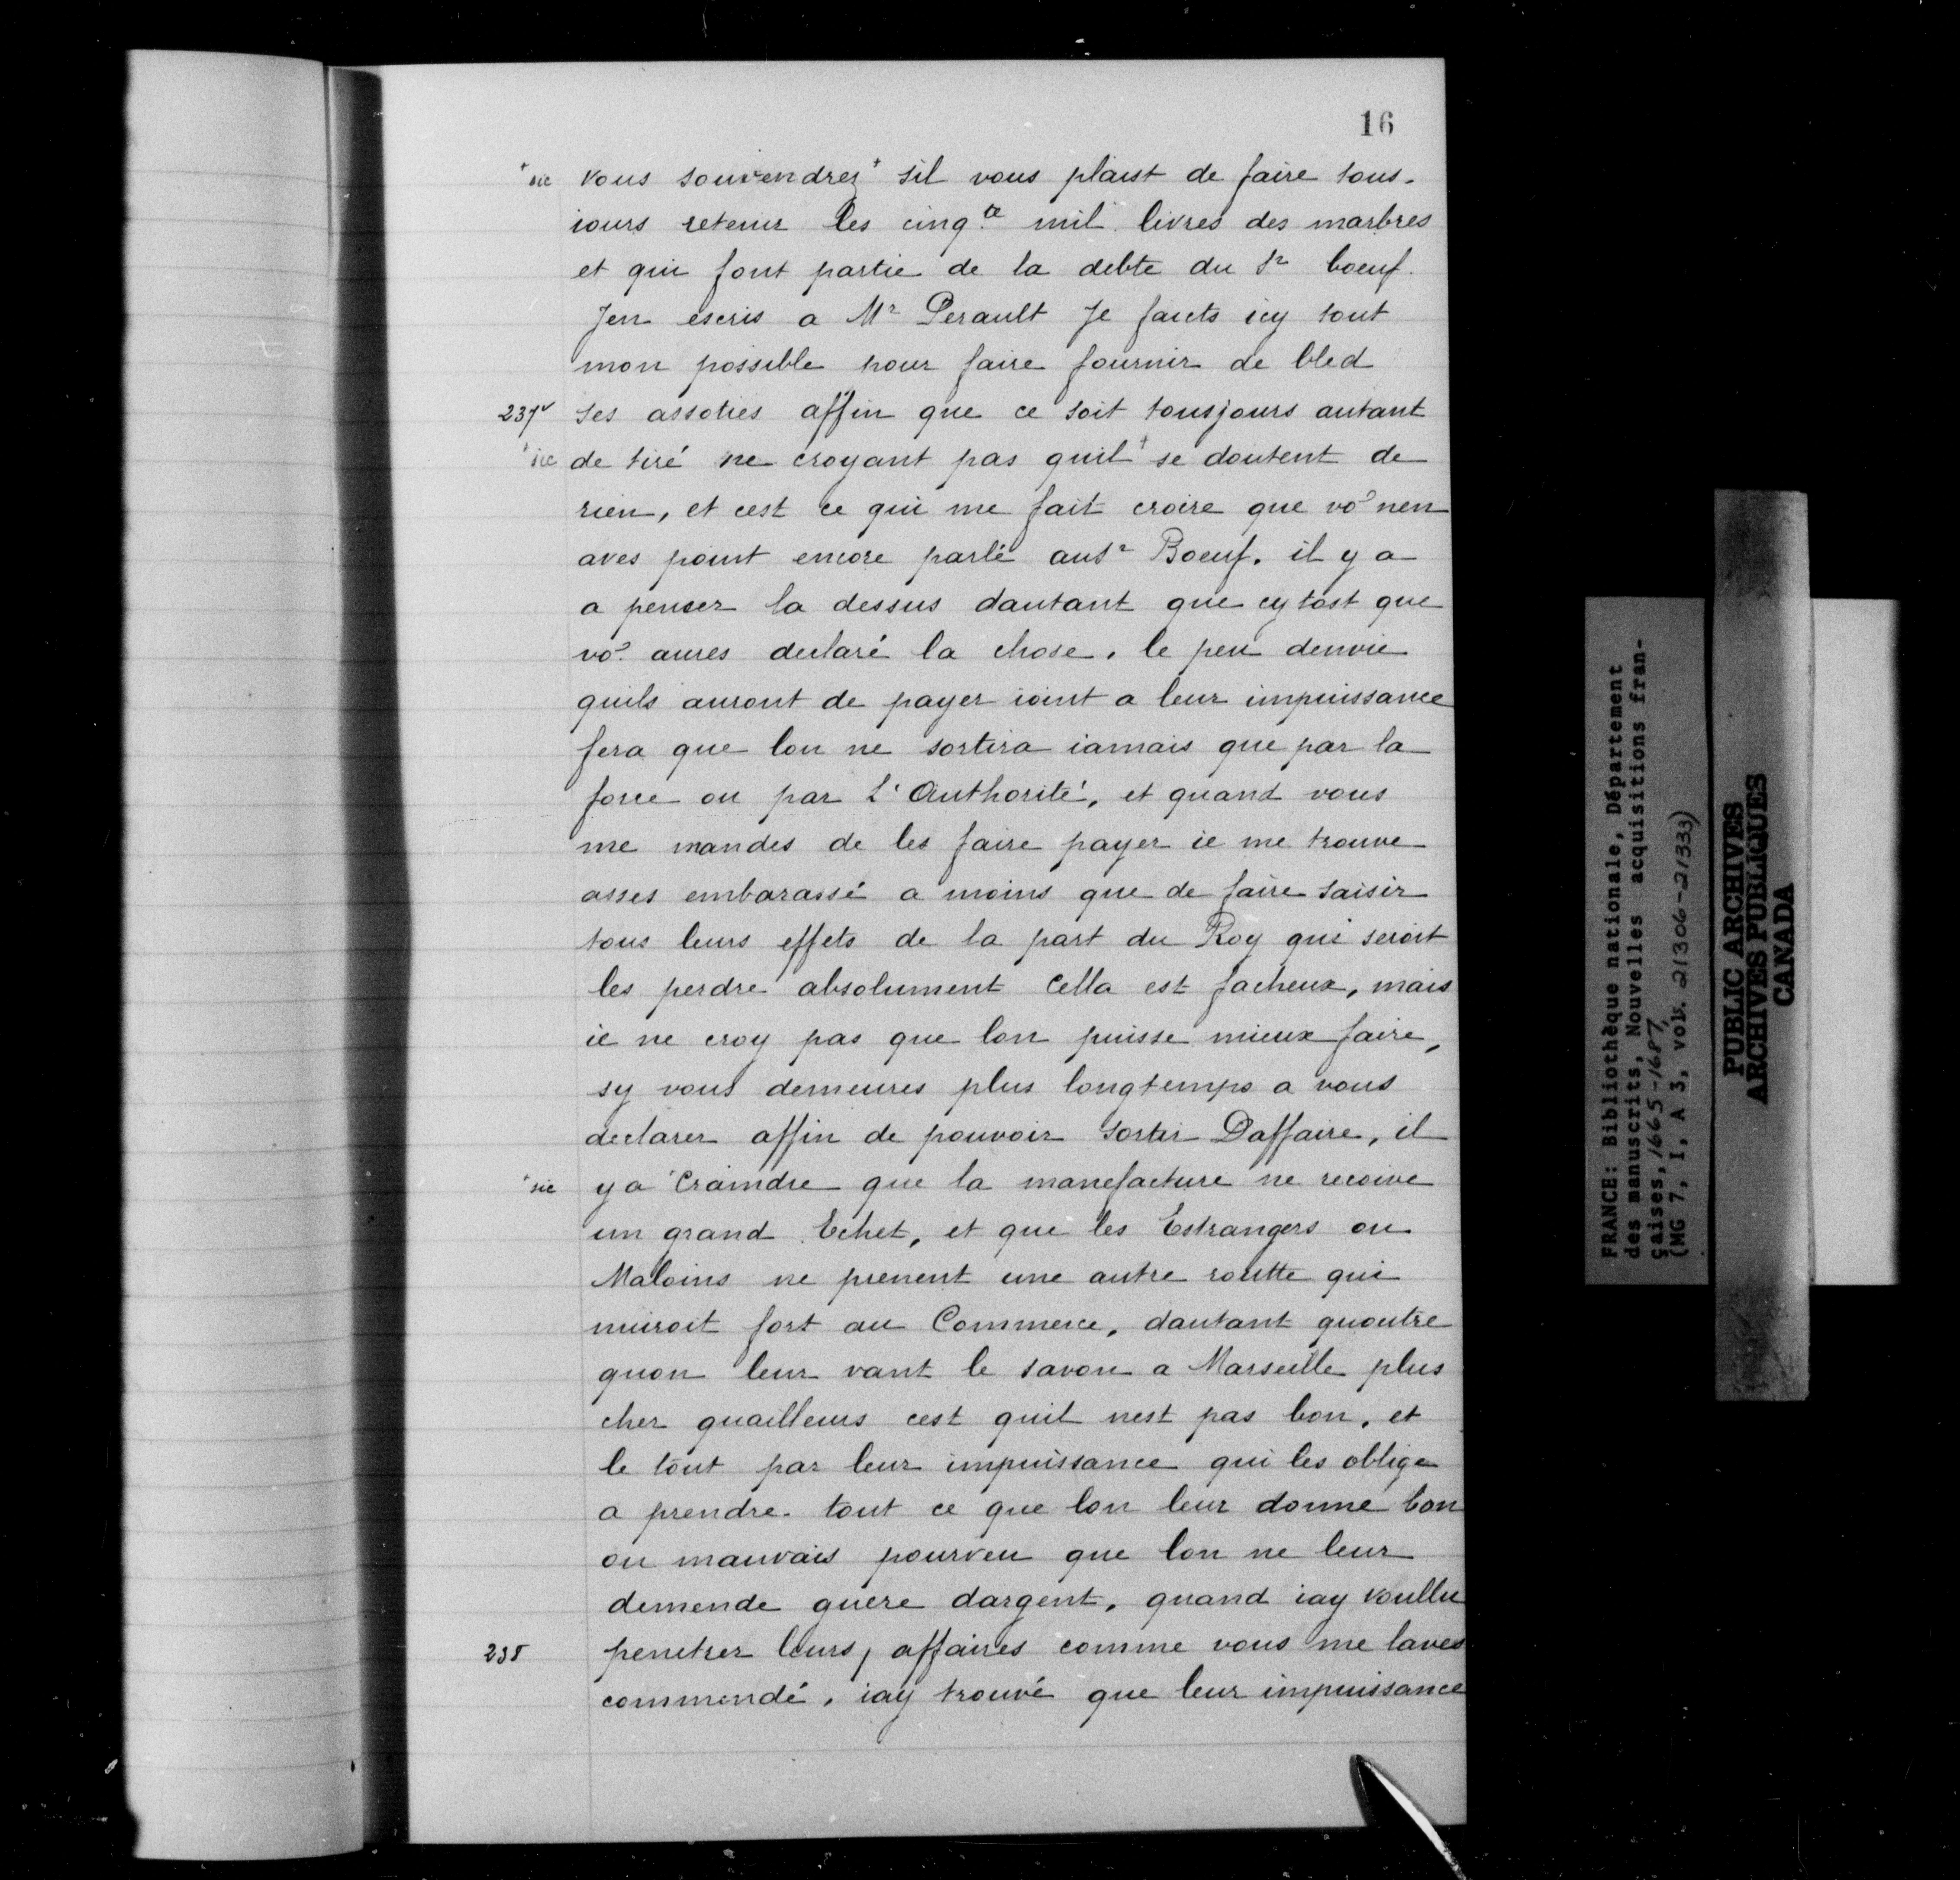 16
+sic vous souvendrez+ sil vous plaist de faire tous-
iours retenir les cinq.te mil livres des marbres
et qui font partie de la debte du Sr boeuf.
Jen escris a Mr Perault Je faicts icy tout
mon possible pour faire fournir de bled
237v ses assoties affin que ce soit tousjours autant
+sic de tiré ne croyant pas quil+ se doutent de
rien, et cest ce qui me fait croire que vo' nen
aves point encore parlé au Sr Boeuf. il y a
a penser la dessus dautant que cy tost que
vo' aures declaré la chose, le peu denvie
quils auront de payer ioint a leur impuissance
fera que lon ne sortira iamais que par la
force ou par L'Authorité, et quand vous
me mandes de les faire payer ie me trouve
asses embarassé a moins que de faire saisir
tous leurs effets de la part du Roy qui seroit
les perdre absolument Cella est facheux, mais
ie ne croy pas que lon puisse mieux faire,
sy vous demeures plus longtemps a vous
declarer affin de pouvoir sortir Daffaire, il
+sic y a +Craindre que la manefacture ne recoive
un grand Echet, et que les Estrangers ou
Maloins ne prenent une autre routte qui
nuiroit fort au Commerce, dautant quoutre
quon leur vant le savon a Marseille plus
cher quailleurs cest quil nest pas bon, et
le tout par leur impuissance qui les oblige
a prendre tout ce que lon leur donne bon
ou mauvais pourveu que lon ne leur
demende guere dargent, quand iay voullu
238 penetrer leurs, affaires comme vous me laves
commendé, iay trouvé que leur impuissance
FRANCE: Bibliothèque nationale, Département
des manuscrits, Nouvelles acquisitions fran-
çaises, 1665-1687,
(MG 7, I, A 3, vols. 21306-21333)
PUBLIC ARCHIVES
ARCHIVES PUBLIQUES
CANADA